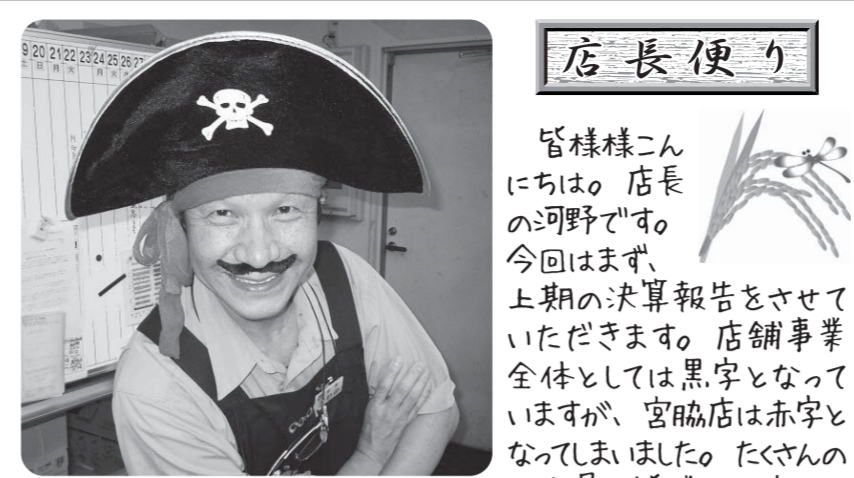 9 20 21 22 23 24 25 26 27
店長便り
皆様様こん
にちは。店長
の河野です。
今回はまず、
上期の決算報告をさせて
いただきます。店舗事業
全体としては黒字となって
いますが、宮脇店は赤字と
なってしまいました。たくさんの